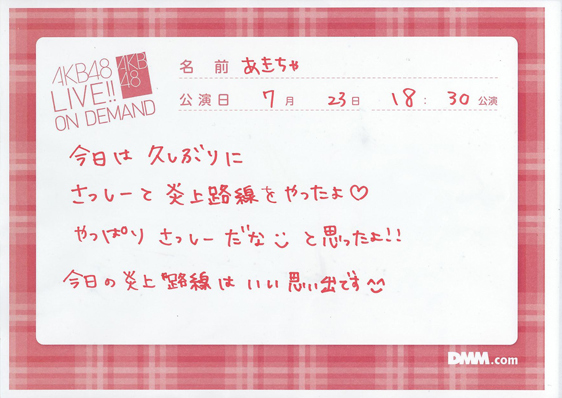 AKB48
LIVE!!
ON DEMAND
AKB
48
名 前 あきちゃ
公演日 7月 23日 18:30 公演
今日は 久しぶりに
さっしーと 炎上路線をやったよ♡
やっぱり さっしーだな と思ったよ!!
今日の炎上路線は いい思い出です
DMM.com